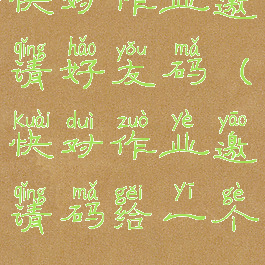 快对作业邀
qǐng hǎo yǒu mǎ
请好友码（
kuài duì zuò yè yāo
快对作业邀
qǐng mǎ gěi yī gè
请码给一个